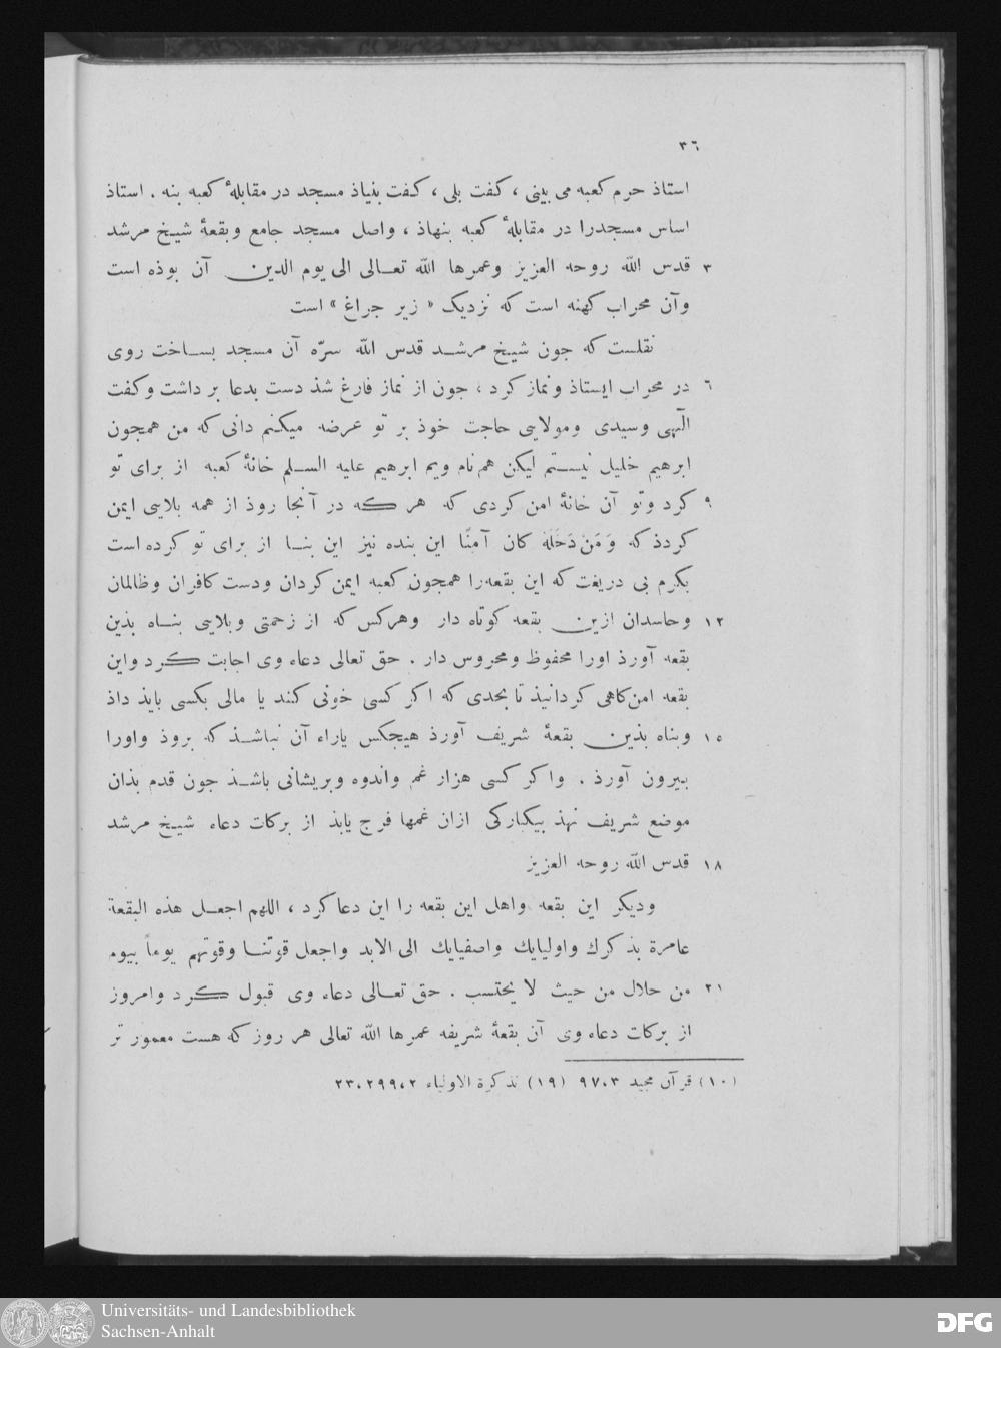 ٣٦
استاذ حرم کعبه می بینی ، کفت بلی ، کفت بنیاذ مسجد در مقابلهٔ کعبه بنه . استاذ
اساس مسجدرا در مقابلهٔ کعبه بنهاذ ، واصل مسجد جامع وبقعهٔ شیخ مرشد
٣ قدس الله روحه العزیز وعمرها الله تعالی الی یوم الدین آن بوذه است
وآن محراب کهنه است که نزدیک « زیر جراغ » است
نقلست که جون شیخ مرشد قدس الله سرّه آن مسجد بساخت روی
٦ در محراب ایستاذ ونماز کرد ، جون از نماز فارغ شذ دست بدعا بر داشت وکفت
الٓهی وسیدی ومولایی حاجت خوذ بر تو عرضه میکنم دانی که من همجون
ابرهیم خلیل نیستم لیکن هم نام ویم ابرهیم علیه السلم خانهٔ کعبه از برای تو
٩ کرد وتو آن خانهٔ امن کردی که هر که در آنجا روذ از همه بلایی ایمن
کردذ که وَمَنْ دَخَلَهُ کان آمنًا این بنده نیز این بنا از برای تو کرده است
بکرم بی دریغت که این بقعه‌را همجون کعبه ایمن کردان ودست کافران وظالمان
١٢ وحاسدان ازین بقعه کوتاه دار وهرکس که از زحمتی وبلایی بناه بذین
بقعه آورذ اورا محفوظ ومحروس دار . حق تعالی دعاء وی اجابت کرد واین
بقعه امن‌کاهی کردانیذ تا بحدی که اکر کسی خونی کند یا مالی بکسی بایذ داذ
١٥ وبناه بذین بقعهٔ شریف آورذ هیجکس یاراء آن نباشذ که بروذ واورا
بیرون آورذ . واکر کسی هزار غم واندوه وبریشانی باشذ جون قدم بذان
موضع شریف نهذ بیکبارکی ازان غمها فرج یابذ از برکات دعاء شیخ مرشد
١٨ قدس الله روحه العزیز
ودیکر این بقعه واهل این بقعه را این دعا کرد ، اللهم اجعل هذه البقعة
عامرة بذکرك واولیایك واصفیایك الی الابد واجعل قوّتنا وقوتهم یوماً بیوم
٢١ من حلال من حیث لا یحتسب . حق تعالی دعاء وی قبول کرد وامروز
از برکات دعاء وی آن بقعهٔ شریفه عمرها الله تعالی هر روز که هست معمور تر
(١٠) قرآن مجید ٩٧،٣ (١٩) تذکرة الاولیاء ٢٣،٢٩٩،٢
Universitäts- und Landesbibliothek
Sachsen-Anhalt
DFG